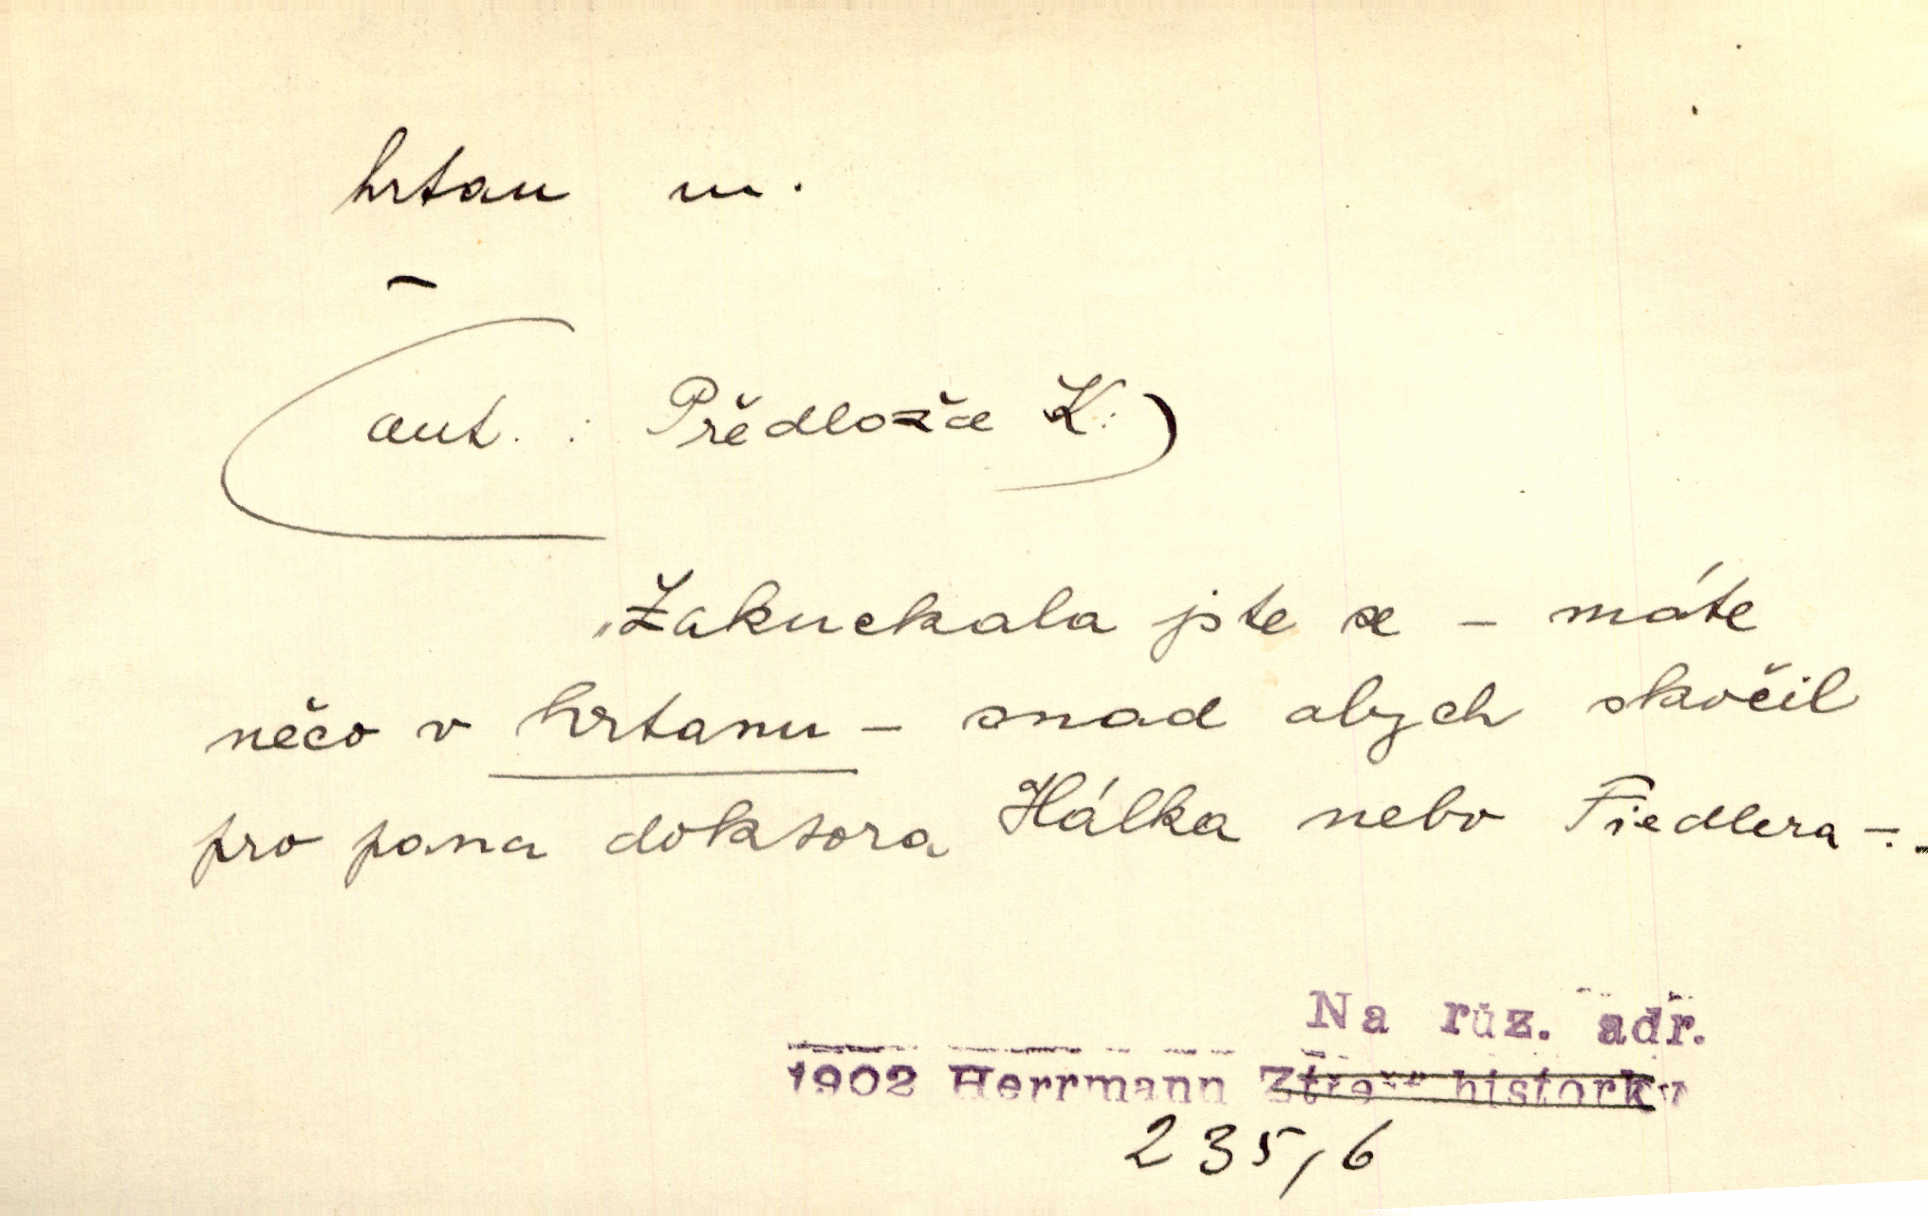 hrtan m.
(aut. : Předlože K.)
„Zakuckala jste se – máte
něco v hrtanu – snad abych skočil
pro pana doktora Hálka nebo Fiedlera –.–
Na růz. adr.
1902 Herrmann historky
235,6